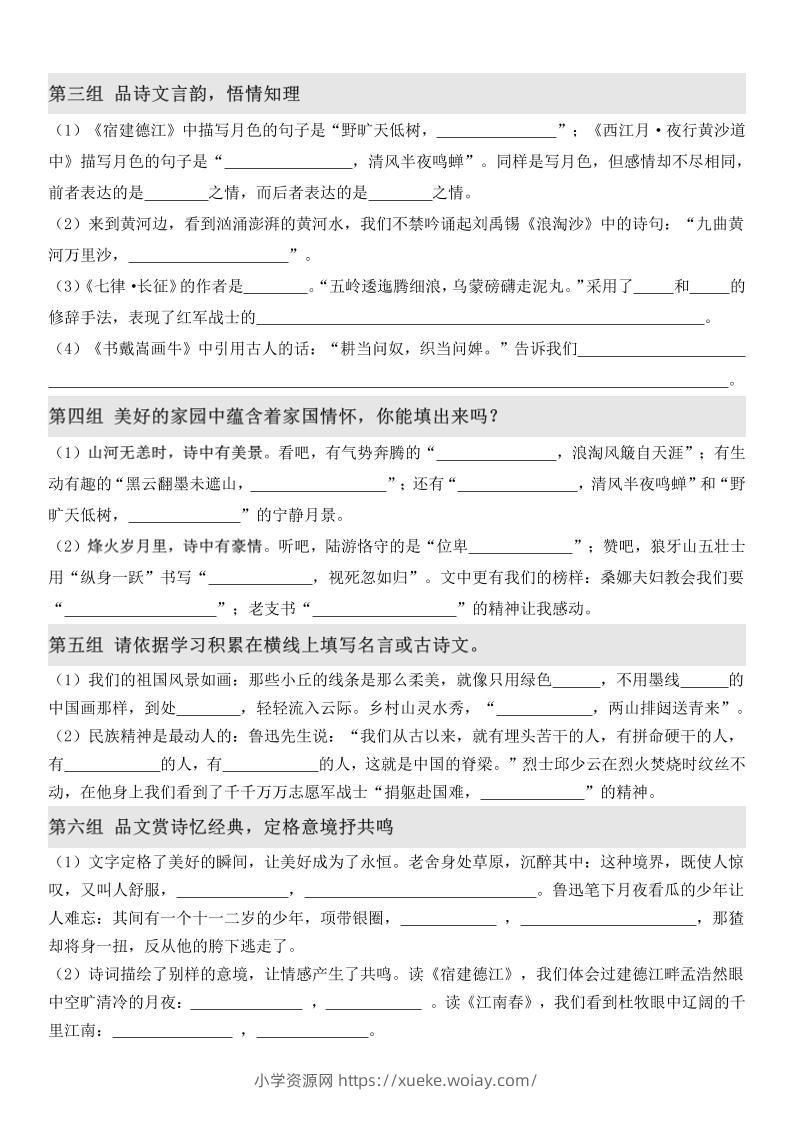 第三组 品诗文言韵，悟情知理
（1）《宿建德江》中描写月色的句子是“野旷天低树，_______________”；《西江月·夜行黄沙道
中》描写月色的句子是“________________，清风半夜鸣蝉”。同样是写月色，但感情却不尽相同，
前者表达的是________之情，而后者表达的是________之情。
（2）来到黄河边，看到汹涌澎湃的黄河水，我们不禁吟诵起刘禹锡《浪淘沙》中的诗句：“九曲黄
河万里沙，____________________”。
（3）《七律·长征》的作者是________。“五岭逶迤腾细浪，乌蒙磅礴走泥丸。”采用了_____和_____的
修辞手法，表现了红军战士的________________________________________________________。
（4）《书戴嵩画牛》中引用古人的话：“耕当问奴，织当问婢。”告诉我们_____________________
_____________________________________________________________________________________。
第四组 美好的家园中蕴含着家国情怀，你能填出来吗？
（1）山河无恙时，诗中有美景。看吧，有气势奔腾的“_______________，浪淘风簸自天涯”；有生
动有趣的“黑云翻墨未遮山，_________________”；还有“_______________，清风半夜鸣蝉”和“野
旷天低树，______________”的宁静月景。
（2）烽火岁月里，诗中有豪情。听吧，陆游恪守的是“位卑_____________”；赞吧，狼牙山五壮士
用“纵身一跃”书写“_____________，视死忽如归”。文中更有我们的榜样：桑娜夫妇教会我们要
“___________________”；老支书“__________________”的精神让我感动。
第五组 请依据学习积累在横线上填写名言或古诗文。
（1）我们的祖国风景如画：那些小丘的线条是那么柔美，就像只用绿色______，不用墨线______的
中国画那样，到处________，轻轻流入云际。乡村山灵水秀，“____________，两山排闼送青来”。
（2）民族精神是最动人的：鲁迅先生说：“我们从古以来，就有埋头苦干的人，有拼命硬干的人，
有____________的人，有____________的人，这就是中国的脊梁。”烈士邱少云在烈火焚烧时纹丝不
动，在他身上我们看到了千千万万志愿军战士“捐躯赴国难，_____________”的精神。
第六组 品文赏诗忆经典，定格意境抒共鸣
（1）文字定格了美好的瞬间，让美好成为了永恒。老舍身处草原，沉醉其中：这种境界，既使人惊
叹，又叫人舒服，______________，_____________________________。鲁迅笔下月夜看瓜的少年让
人难忘：其间有一个十一二岁的少年，项带银圈，____________，______________________，那猹
却将身一扭，反从他的胯下逃走了。
（2）诗词描绘了别样的意境，让情感产生了共鸣。读《宿建德江》，我们体会过建德江畔孟浩然眼
中空旷清冷的月夜：______________，____________。读《江南春》，我们看到杜牧眼中辽阔的千
里江南：_______________，______________。
小学资源网 https://xueke.woiay.com/